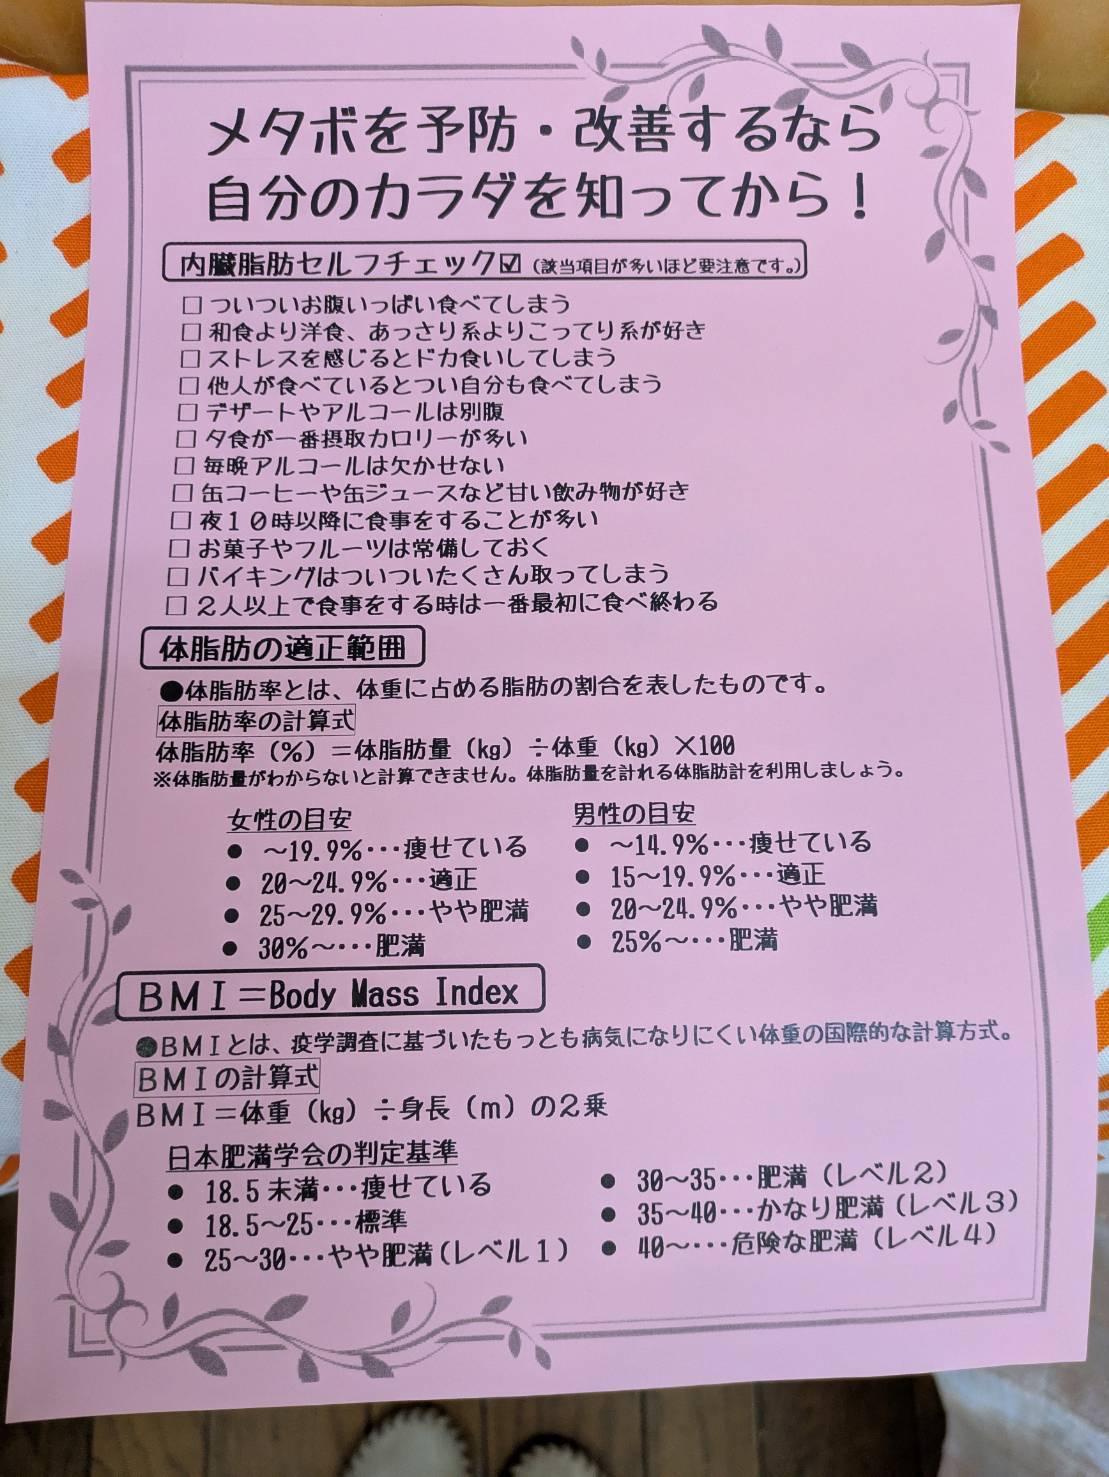 メタボを予防・改善するなら
自分のカラダを知ってから！
内臓脂肪セルフチェック☑（該当項目が多いほど要注意です。）
□ ついついお腹いっぱい食べてしまう
□ 和食より洋食、あっさり系よりこってり系が好き
□ ストレスを感じるとドカ食いしてしまう
□ 他人が食べているとつい自分も食べてしまう
□ デザートやアルコールは別腹
□ 夕食が一番摂取カロリーが多い
□ 毎晩アルコールは欠かせない
□ 缶コーヒーや缶ジュースなど甘い飲み物が好き
□ 夜１０時以降に食事をすることが多い
□ お菓子やフルーツは常備しておく
□ バイキングはついついたくさん取ってしまう
□ ２人以上で食事をする時は一番最初に食べ終わる
体脂肪の適正範囲
●体脂肪率とは、体重に占める脂肪の割合を表したものです。
体脂肪率の計算式
体脂肪率（％）＝体脂肪量（kg）÷体重（kg）×100
※体脂肪量がわからないと計算できません。体脂肪量を計れる体脂肪計を利用しましょう。
女性の目安
● ～19.9%･･･痩せている
● 20～24.9%･･･適正
● 25～29.9%･･･やや肥満
● 30%～･･･肥満
男性の目安
● ～14.9%･･･痩せている
● 15～19.9%･･･適正
● 20～24.9%･･･やや肥満
● 25%～･･･肥満
ＢＭＩ＝Body Mass Index
●ＢＭＩとは、疫学調査に基づいたもっとも病気になりにくい体重の国際的な計算方式。
ＢＭＩの計算式
ＢＭＩ＝体重（kg）÷身長（ｍ）の２乗
日本肥満学会の判定基準
● 18.5未満･･･痩せている
● 18.5～25･･･標準
● 25～30･･･やや肥満（レベル１）
● 30～35･･･肥満（レベル２）
● 35～40･･･かなり肥満（レベル３）
● 40～･･･危険な肥満（レベル４）